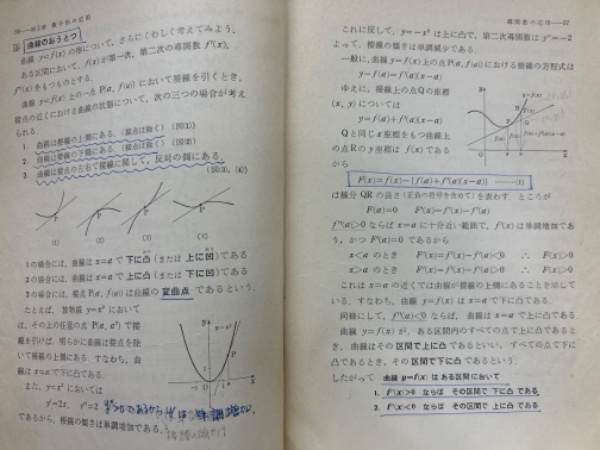 曲線のおうとつ
曲線 y=f(x) の形について，さらにくわしく考えてみよう．
ある区間において，f(x) が第一次，第二次の導関数 f'(x),
f''(x) をもつものとする．
曲線 y=f(x) 上の一点 P(a, f(a)) において接線を引くとき，
接点の近くにおける曲線の状態について，次の三つの場合が考え
られる．
1. 曲線は接線の上側にある．(接点は除く) (図(1))
2. 曲線は接線の下側にある．(接点は除く) (図(2))
3. 曲線は接点の左右で接線に関して，反対の側にある．
(図(3), (4))
P
P
P
P
(1) (2) (3) (4)
1の場合には，曲線は x=a で 下に凸 (または 上に凹) である
2の場合には，曲線は x=a で 上に凸 (または 下に凹) である
3の場合には，接点 P(a, f(a)) は曲線の 変曲点 であるという．
たとえば，放物線 y=x² において
は，その上の任意の点 P(a, a²) で接
線を引けば，明らかに曲線は接点を除
いて接線の上側にある．すなわち，曲
線は x=a で下に凸である．
また，y=x² においては
y'=2x, y''=2
であるから，接線の傾きは単調増加である．
y
y=x²
P
-1 O 1 a x
導関数の応用—57
これに反して，y=-x² は上に凸で，第二次導関数は y''=-2
よって，接線の傾きは単調減少である．
一般に，曲線 y=f(x) 上の点 P(a, f(a)) における接線の方程式は
y-f(a)=f'(a)(x-a)
ゆえに，接線上の点 Q の座標
(x, y) については
y=f(a)+f'(a)(x-a)
Q と同じ x 座標をもつ曲線上
の点 R の y 座標は f(x) である
から
F(x)=f(x)-{f(a)+f'(a)(x-a)} ………(1)
は線分 QR の長さ (正負の符号を含めて) を表わす．ところが
F(a)=0 F'(x)=f'(x)-f'(a)
f''(a)>0 ならば x=a に十分近い範囲で，f'(x) は単調増加であ
り，かつ F'(a)=0 であるから
x<a のとき F'(x)=f'(x)-f'(a)<0 ∴ F(x)>0
x>a のとき F'(x)=f'(x)-f'(a)>0 ∴ F(x)>0
これは x=a の近くでは曲線が接線の上側にあることを示して
いる．すなわち，曲線 y=f(x) は x=a で下に凸である．
同様にして，f''(a)<0 ならば，曲線は x=a で上に凸である．
曲線 y=f(x) が，ある区間内のすべての点で上に凸であると
き，曲線はその 区間で上に凸 であるといい，すべての点で下に
凸であるとき，その 区間で下に凸 であるという．
したがって 曲線 y=f(x) は ある区間において
1. f''(x)>0 ならば その区間で 下に凸 である
2. f''(x)<0 ならば その区間で 上に凸 である